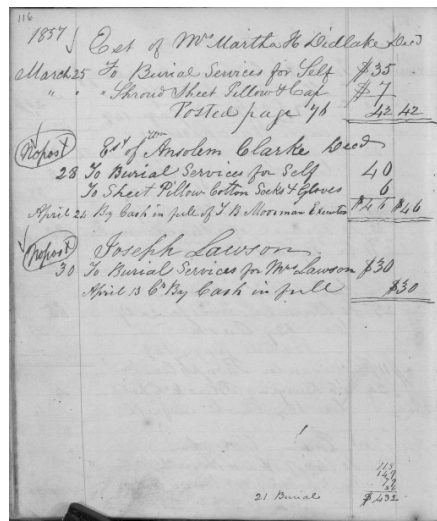 116
1857 Est of Mrs Martha H Didlake Decd
March 25 To Burial Services for Self $35
" " " Shroud Sheet Pillow & Cap $7
Posted page 76 42 42
No post Est of Ansolem Clarke Decd
28 To Burial Services for Self 40
To Sheet Pillow Cotton Socks & Gloves 6
April 21 By Cash in full of T B Moorman Executor $46 $46
No post Joseph Lawson
30 To Burial Services for Mrs Lawson $30
April 13 Cr By Cash in full $30
21 Burial $432